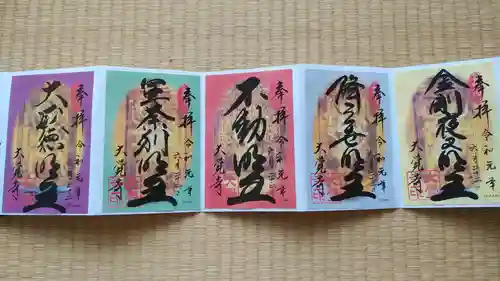 奉拝
令和元年
金剛夜叉明王
大覚寺
奉拝
令和元年
降三世明王
大覚寺
奉拝
令和元年
不動明王
大覚寺
奉拝
令和元年
軍荼利明王
大覚寺
奉拝
令和元年
大威徳明王
大覚寺